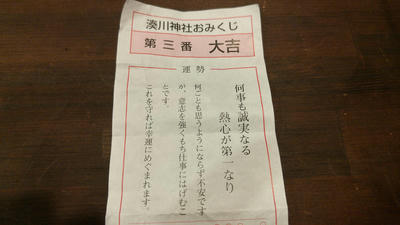 湊川神社おみくじ
第三番 大吉
運勢
何事も誠実なる
熱心が第一なり
何ごとも思うようにならず不安です
が、意志を強くもち仕事にはげむこ
とです。
これを守れば幸運にめぐまれます。